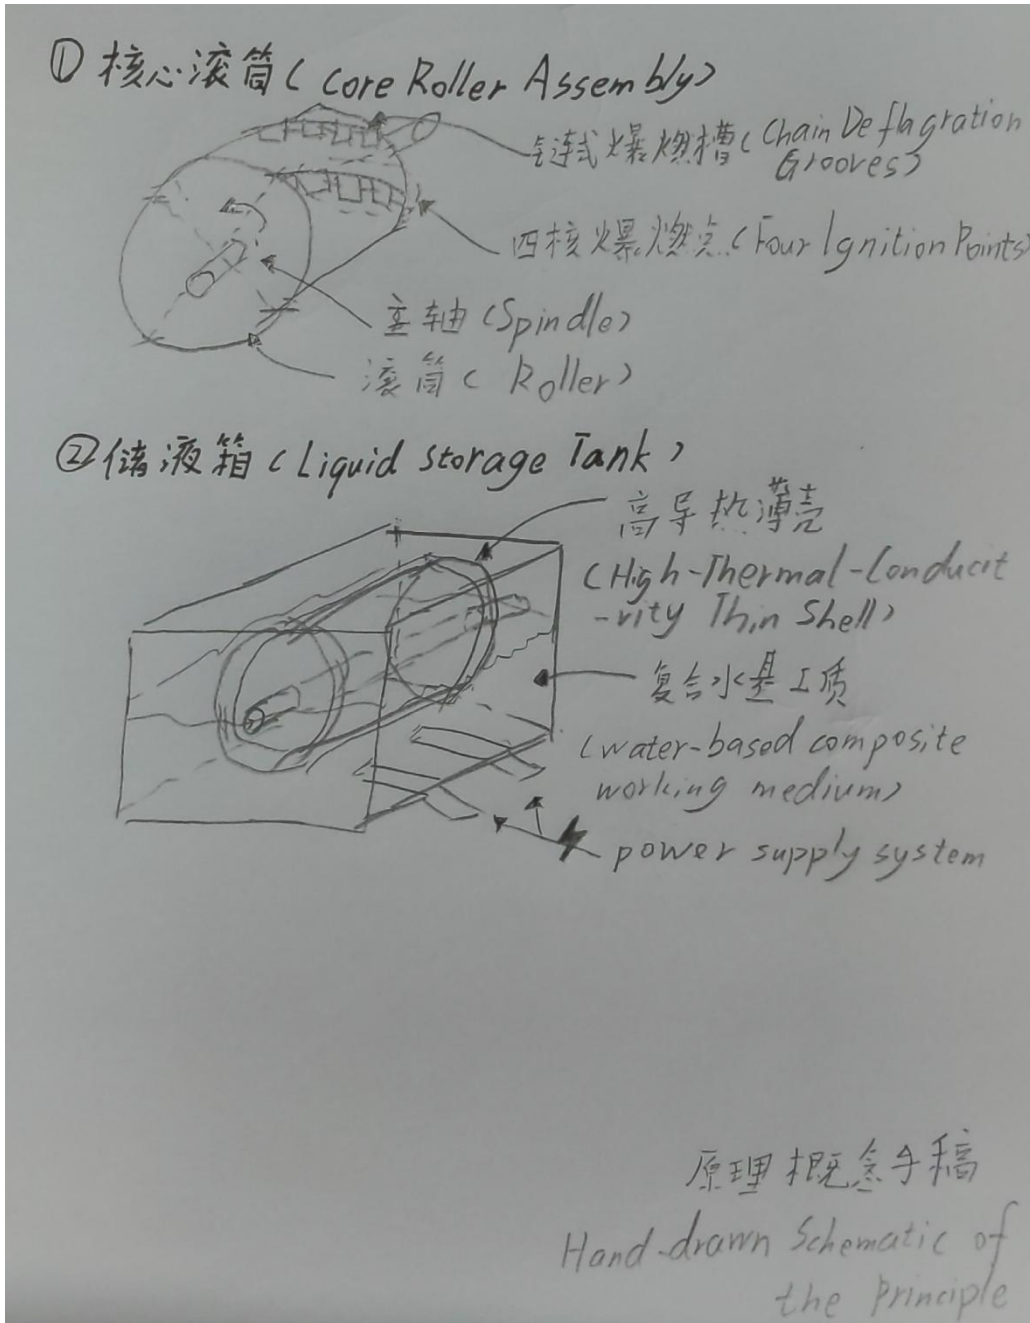 ① 核心滚筒(Core Roller Assembly)
链式爆燃槽(Chain Deflagration
Grooves)
四核爆燃点(Four Ignition Points)
主轴(Spindle)
滚筒(Roller)
② 储液箱(Liquid Storage Tank)
高导热薄壳
(High-Thermal-Conducit
-vity Thin Shell)
复合水基工质
(water-based composite
working medium)
power supply system
原理概念手稿
Hand-drawn Schematic of
the Principle